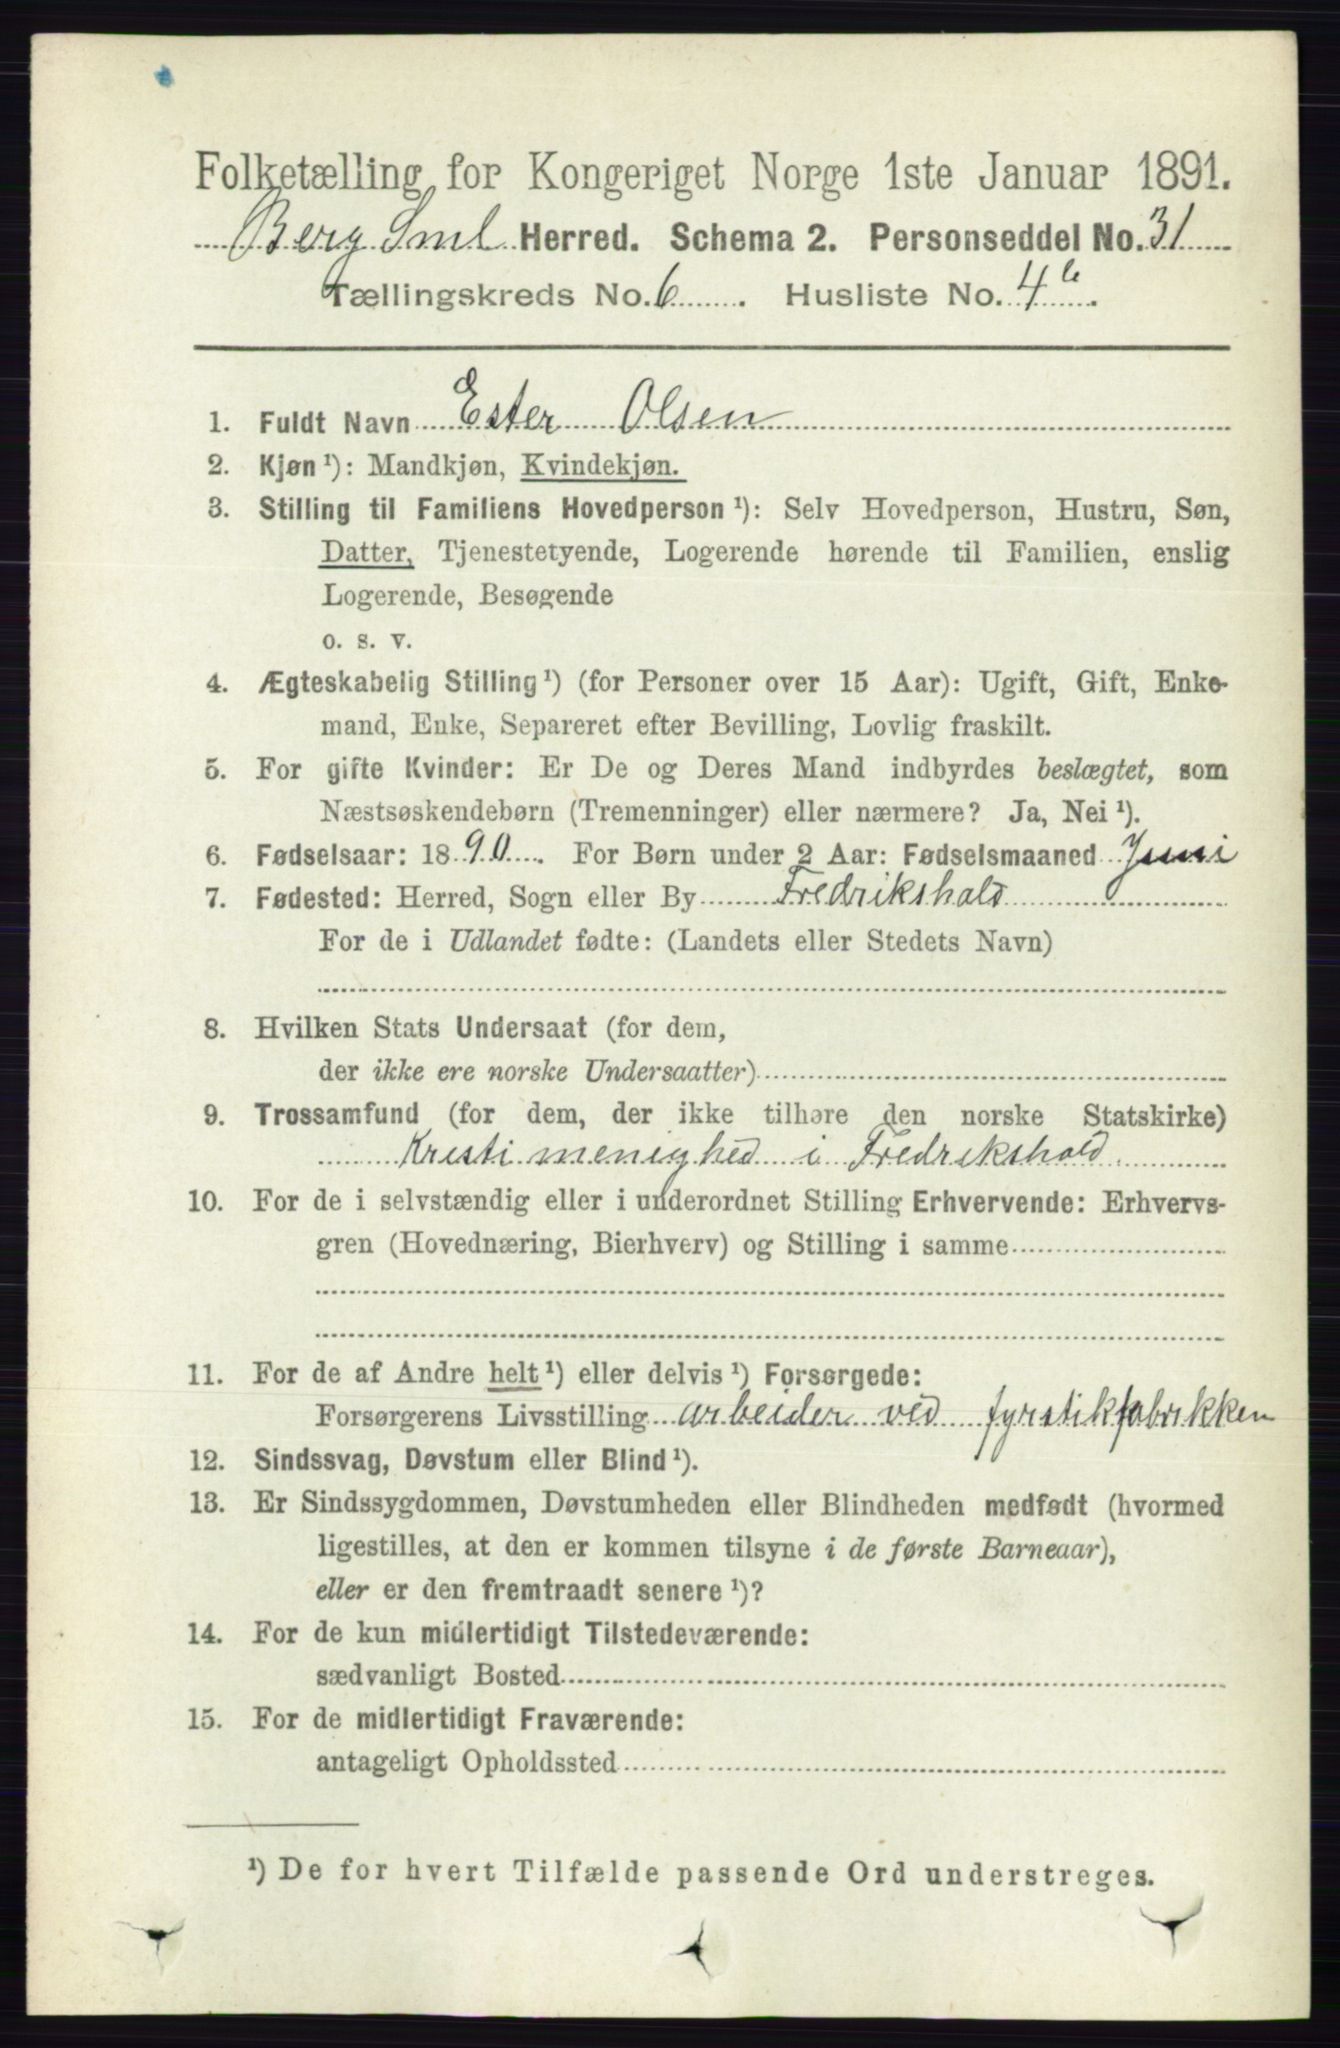 Folketælling for Kongeriget Norge 1ste Januar 1891.
Berg Sml Herred. Schema 2. Personseddel No. 31
Tællingskreds No. 6. Husliste No. 4 b.
1. Fuldt Navn Ester Olsen
2. Kjøn ¹): Mandkjøn, Kvindekjøn.
3. Stilling til Familiens Hovedperson ¹): Selv Hovedperson, Hustru, Søn,
Datter, Tjenestetyende, Logerende hørende til Familien, enslig
Logerende, Besøgende
o. s. v.
4. Ægteskabelig Stilling ¹) (for Personer over 15 Aar): Ugift, Gift, Enke-
mand, Enke, Separeret efter Bevilling, Lovlig fraskilt.
5. For gifte Kvinder: Er De og Deres Mand indbyrdes beslægtet, som
Næstsøskendebørn (Tremenninger) eller nærmere? Ja, Nei ¹).
6. Fødselsaar: 1890. For Børn under 2 Aar: Fødselsmaaned Juni
7. Fødested: Herred, Sogn eller By Fredrikshald
For de i Udlandet fødte: (Landets eller Stedets Navn)
8. Hvilken Stats Undersaat (for dem,
der ikke ere norske Undersaatter)
9. Trossamfund (for dem, der ikke tilhøre den norske Statskirke)
Kristi menighed i Fredrikshald
10. For de i selvstændig eller i underordnet Stilling Erhvervende: Erhvervs-
gren (Hovednæring, Bierhverv) og Stilling i samme
11. For de af Andre helt ¹) eller delvis ¹) Forsørgede:
Forsørgerens Livsstilling arbeider ved fyrstikfabrikken
12. Sindssvag, Døvstum eller Blind ¹).
13. Er Sindssygdommen, Døvstumheden eller Blindheden medfødt (hvormed
ligestilles, at den er kommen tilsyne i de første Barneaar),
eller er den fremtraadt senere ¹)?
14. For de kun midlertidigt Tilstedeværende:
sædvanligt Bosted
15. For de midlertidigt Fraværende:
antageligt Opholdssted
¹) De for hvert Tilfælde passende Ord understreges.